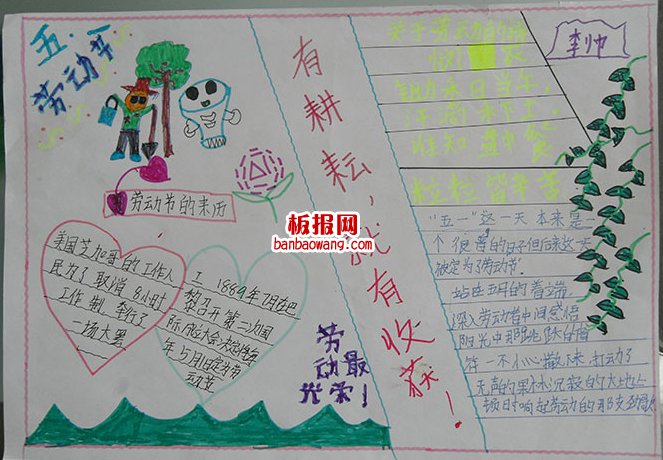 五·一
劳动节
劳动节的来历
美国芝加哥的工作人
民为了取消
8小时
工作制,举行了
一场大罢
1889年7月在巴
黎召开第二次国
际成大会决定将每
年5月1日定为劳
动节
劳动最
光荣!
有耕耘,就有收获!
关于劳动的诗
锄禾日当午,
汗滴禾下土。
谁知盘中餐
粒粒皆辛苦
李帅
"五一"这一天本来是
一个很普的日子但后来这一天
被定为了劳动节.
站在五月的着端
深入劳动者中间感悟
阳光中那跳跃的眉
符一不小心撒下来打动了
无声的果林沉寂的大地上
顿时响起劳动的那支劲歌
板报网
banbaowang.com